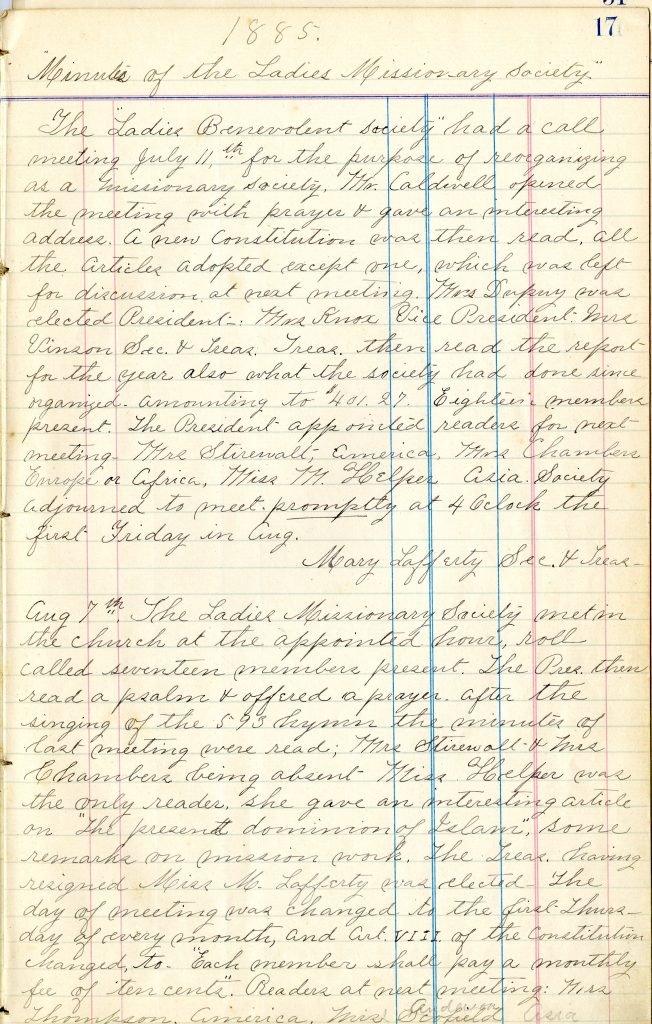 31
17
1885.
"Minutes of the Ladies Missionary Society"
The "Ladies Benevolent Society" had a call
meeting July 11,th for the purpose of reorganizing
as a Missionary Society. Mr. Caldwell opened
the meeting with prayer & gave an interesting
address. A new Constitution was then read, all
the Articles adopted except one, which was left
for discussion at next meeting. Mrs Dupuy was
elected President-: Mrs Knox Vice President: Mrs
Vinson Sec. & Treas. Treas. then read the report
for the year also what the society had done since
organized. amounting to $401.27. Eighteen members
present. The President appointed readers for next
meeting- Mrs Stirewalt, America, Mrs Chambers
Europe or Africa, Miss M. Helper Asia. Society
adjourned to meet promptly at 4 Oclock the
first Friday in Aug.
Mary Lafferty Sec. & Treas-
Aug 7th. The Ladies Missionary Society met in
the church at the appointed hour, roll
called seventeen members present. The Pres. then
read a psalm & offered a prayer. After the
singing of the 593 hymn the minutes of
last meeting were read; Mrs Stirewalt & Mrs
Chambers being absent Miss Helper was
the only reader. She gave an interesting article
on "The present dominion of Islam", some
remarks on mission work. The Treas. having
resigned Miss M. Lafferty was elected- The
day of meeting was changed to the first Thurs-
day of every month, and Art. VIII of the Constitution
changed, to- "Each member shall pay a monthly
fee of ten cents". Readers at next meeting: Mrs
Anderson
Thompson, America, Mrs Scofield Asia